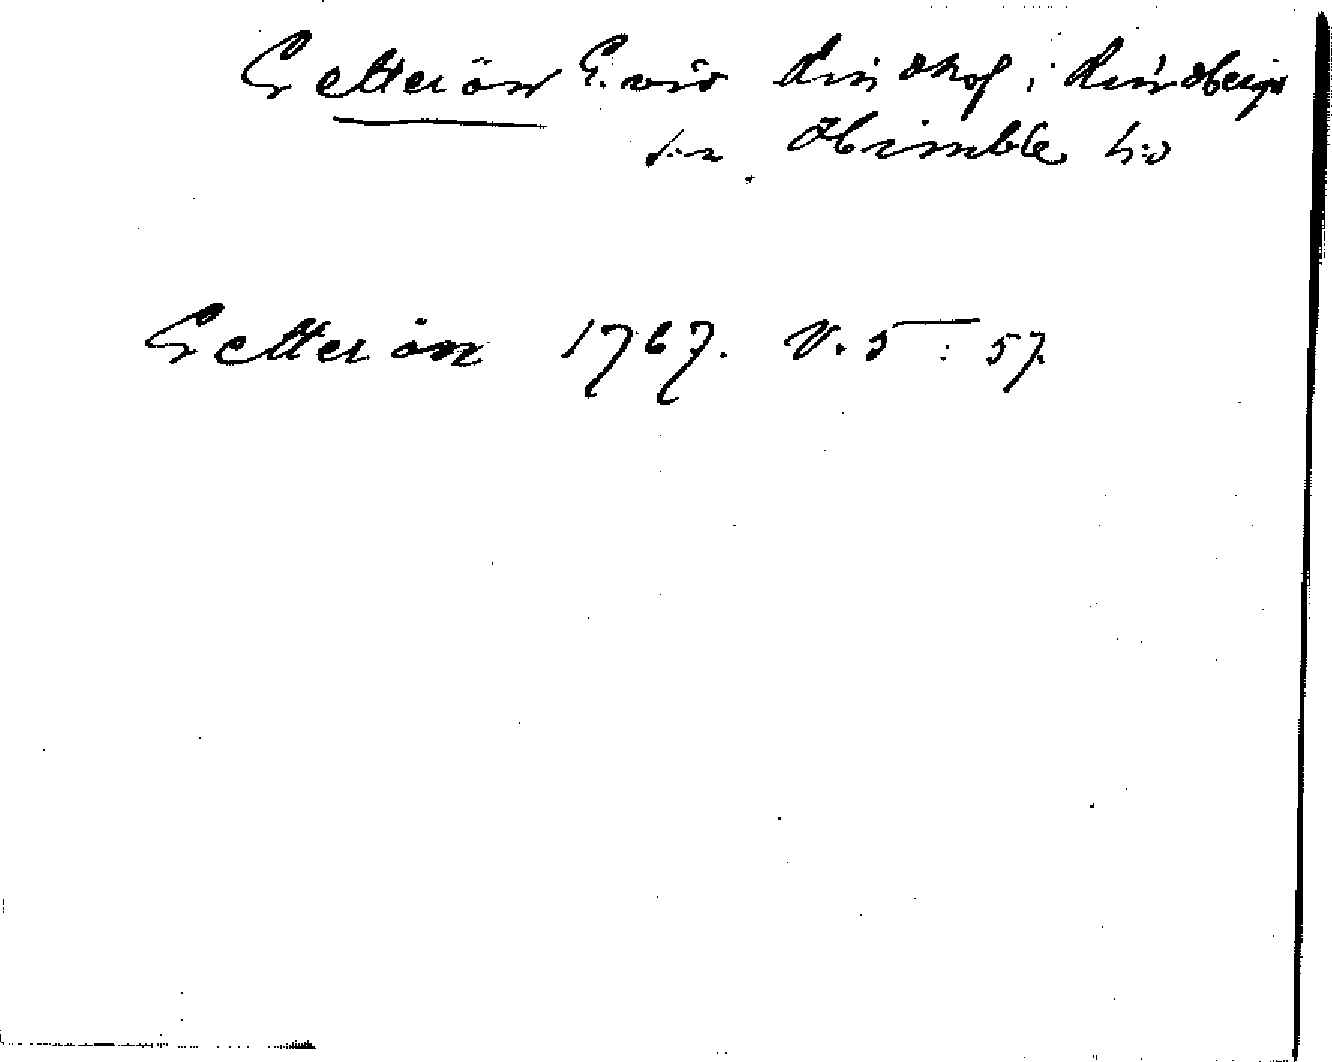 Getterön G. vid Lindhof i Lindbergs
s:n Himble h:d
Getterön 1767. V. 5 : 57.